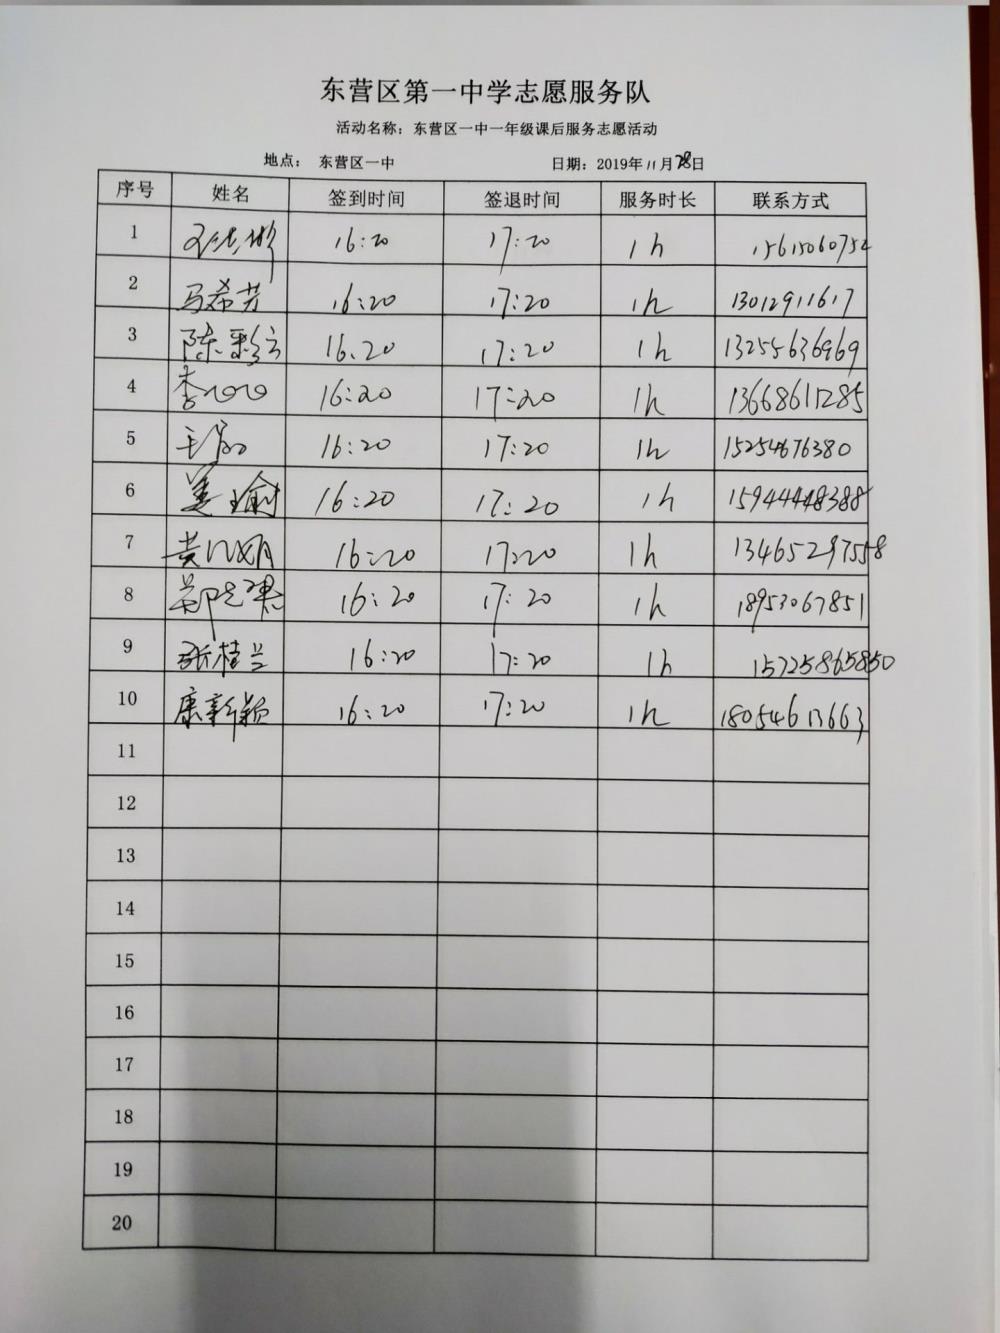 东营区第一中学志愿服务队
活动名称：东营区一中一年级课后服务志愿活动
地点： 东营区一中 日期：2019年11月28日
序号 姓名 签到时间 签退时间 服务时长 联系方式
1 16:20 17:20 1h 15615060752
2 马希芳 16:20 17:20 1h 13012911617
3 陈彩云 16.20 17:20 1h 13255636969
4 李 16:20 17:20 1h 13668611285
5 王 16:20 17:20 1h 15254676380
6 姜瑜 16:20 17:20 1h 15944448388
7 黄 16:20 17:20 1h 13465297558
8 郑 16:20 17:20 1h 18953067851
9 张桂兰 16:20 17:20 1h 15725865850
10 康新颖 16:20 17:20 1h 18054613663
11
12
13
14
15
16
17
18
19
20